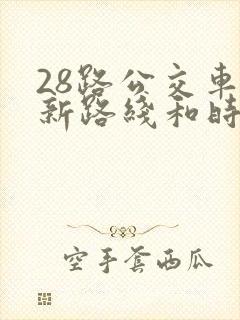 28路公交車
新路綫和時
空手套西瓜